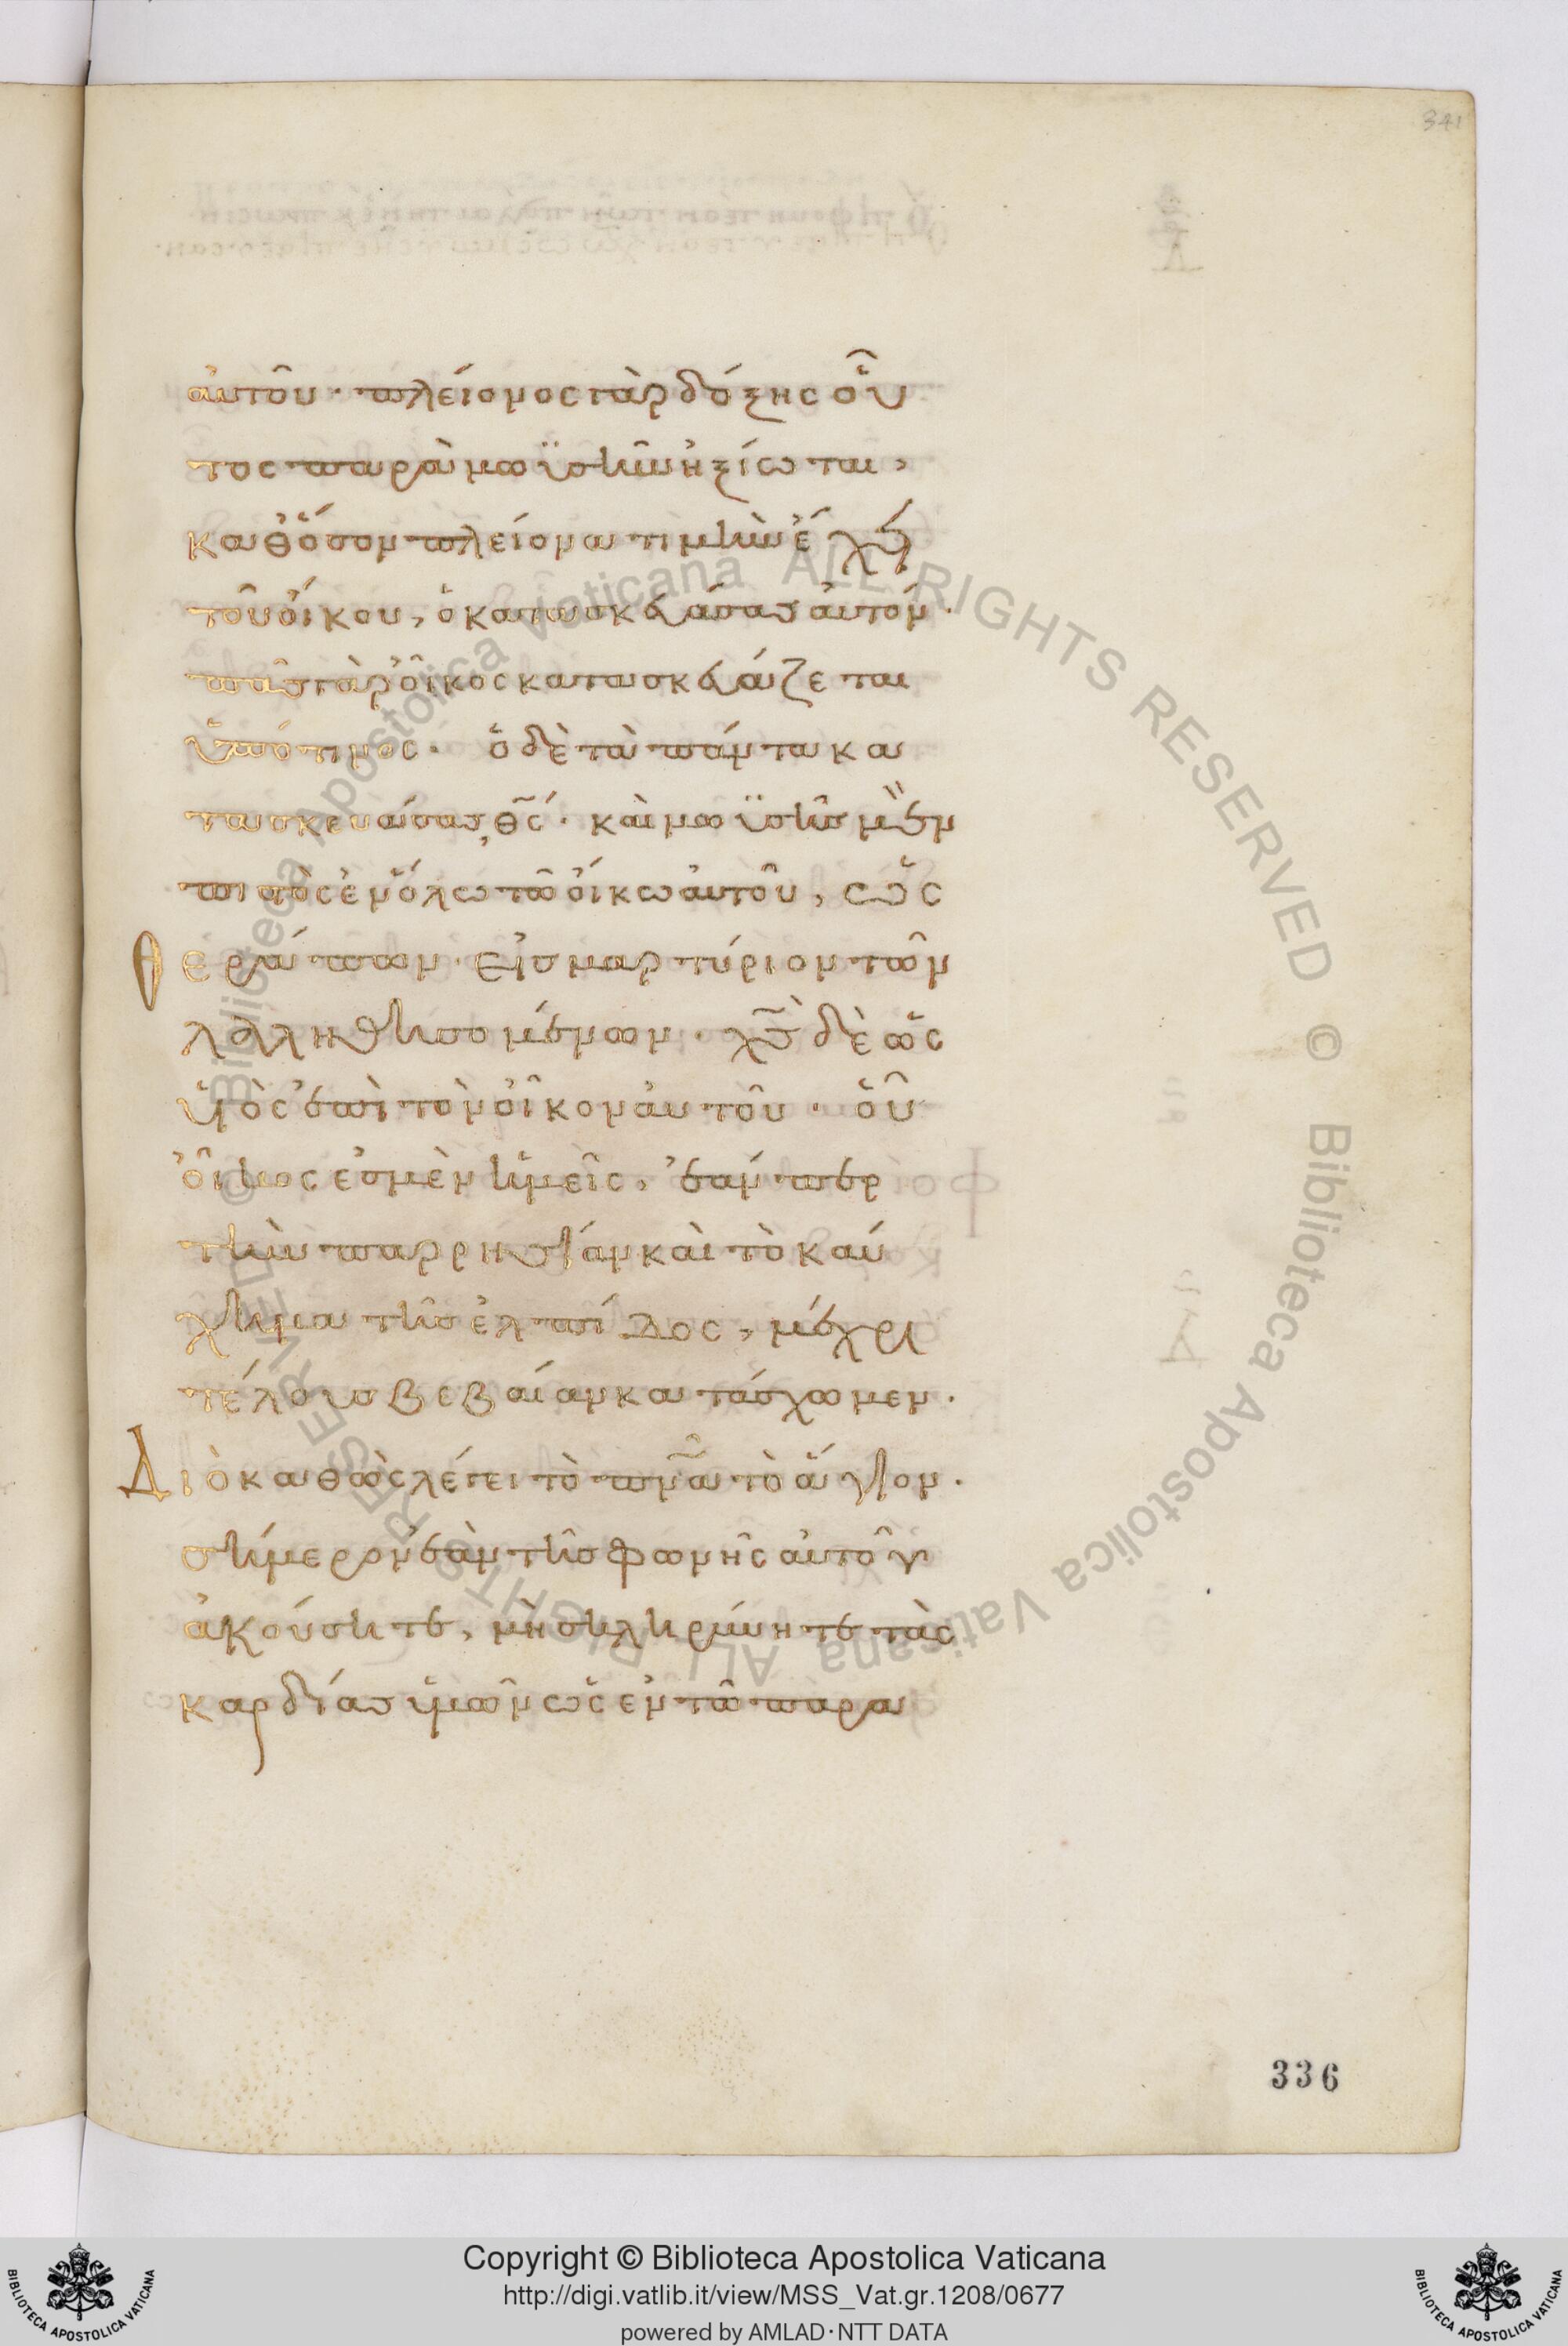 341
αὐτοῦ· πλείονος γὰρ δόξης οὗ
τος παρὰ μωϋσῆν ἠξίωται,
καθ' ὅσον πλείονα τιμὴν ἔχει
τοῦ οἴκου, ὁ κατασκευάσας αὐτόν·
πᾶς γὰρ οἶκος κατασκευάζεται
ὑπό τινος· ὁ δὲ τὰ πάντα κα
τασκευάσας, θς· καὶ μωϋσῆς μὲν
πιστὸς ἐν ὅλω τῶ οἴκω αὐτοῦ, ὡς
θεράπων· εἰς μαρτύριον τῶν
λαληθησομένων· χς δὲ ὡς
υἱὸς ἐπὶ τὸν οἶκον αὐτοῦ· οὗ
οἶκος ἐσμὲν ἡμεῖς, ἐάνπερ
τὴν παρρησίαν καὶ τὸ καύ
χημα τῆς ἐλπίδος, μέχρι
τέλους βεβαίαν κατάσχωμεν·
Διὸ καθὼς λέγει τὸ πνα τὸ ἅγιον·
σήμερον ἐὰν τῆς φωνῆς αὐτοῦ
ἀκούσητε, μὴ σκληρύνητε τὰς
καρδίας ὑμῶν ὡς ἐν τῶ παρα
336
Biblioteca Apostolica Vaticana ALL RIGHTS RESERVED © Biblioteca Apostolica Vaticana ALL RIGHTS RESERVED ©
Copyright © Biblioteca Apostolica Vaticana
http://digi.vatlib.it/view/MSS_Vat.gr.1208/0677
powered by AMLAD·NTT DATA
BIBLIOTECA APOSTOLICA VATICANA
BIBLIOTECA APOSTOLICA VATICANA